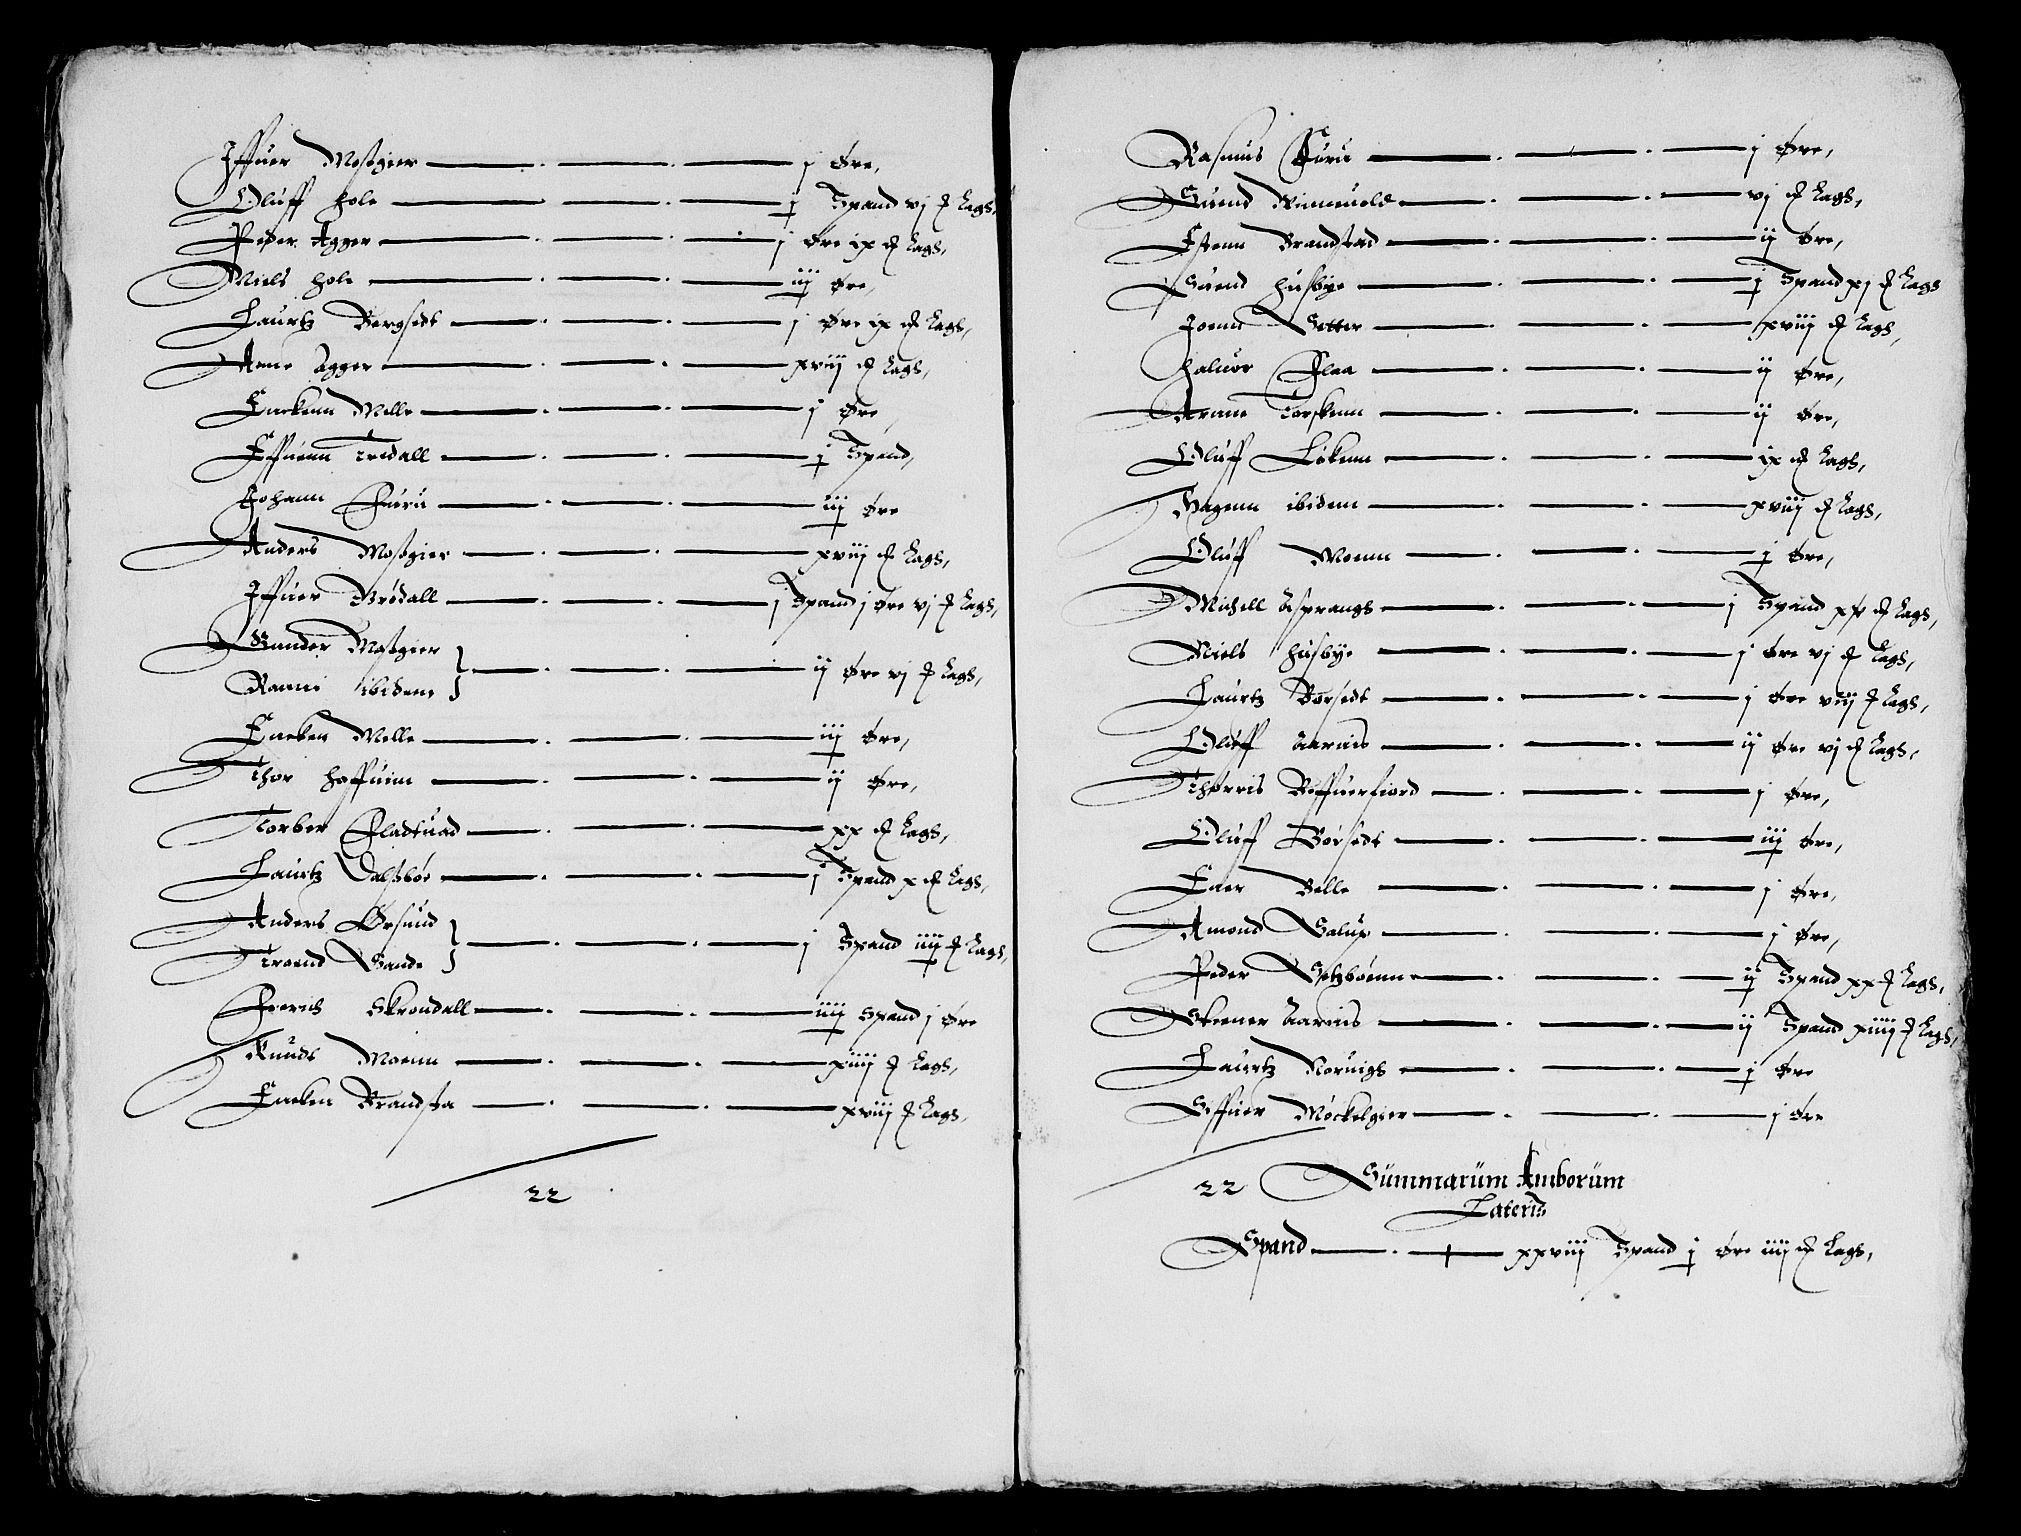 Iffuer Mosgier — j Øre,
Oluff Hole — j Spand vj ₰ Lags,
Peder Agger — j Øre ix ₰ Lags,
Niels Hole — iij Øre,
Laurtz Bergsedt — j Øre ix ₰ Lags,
Arne Agger — xviij ₰ Lags,
Encken Melle — j Øre
Effuenn Tredall — j Spand,
Johann Furu — iij Øre
Anders Mosgier — xviij ₰ Lags,
Iffuer Brødall — j Spand j Øre vj ₰ Lags,
Gunder Mosgier
Rannei ibidem } — ij Øre vj ₰ Lags,
Encken Melle — iij Øre,
Thor Haffuim — ij Øre,
Torber Fladtuad — xx ₰ Lags,
Laurtz Dalsbøe — j Spand x ₰ Lags,
Anders Ørsund
Troend Sande } — j Spand iiij ₰ Lags,
Frerich Skrondall — iiij Spand j Øre
Knuds Moenn — xiiij ₰ Lags,
Encken Brandsta — xviij ₰ Lags,
22
Rasmus Furu — j Øre,
Suend Rimeuold — vj ₰ Lags,
Estenn Brandstad — ij Øre,
Suend Husbye — j Spand xj ₰ Lags
Joenn Setter — xviij ₰ Lags,
Haluor Flaa — ij Øre,
Arane Torskenn — ij Øre,
Oluff Løkenn — ix ₰ Lags,
Magenn ibidem — xviij ₰ Lags,
Oluff Moenn — j Øre,
Michell Asprangs — j Spand xx ₰ Lags,
Niels Husbye — j Øre vj ₰ Lags,
Laurtz Borsedt — j Øre viij ₰ Lags,
Oluff Aarnis — ij Øre vj ₰ Lags,
Thorris Beffuerfiord — j Øre,
Oluff Børsedt — iij Øre,
Ener Belle — j Øre,
Amond Salup — j Øre,
Peder Setzbøenn — ij Spand xx ₰ Lags,
Steener Aarnis — ij Spand xiiij ₰ Lags,
Laurtz Noruigs — j Øre
Siffuer Møckelgier — j Øre
22 Summarum Amborum
Lateris
Spand — xxviij Spand j Øre iiij ₰ Lags,